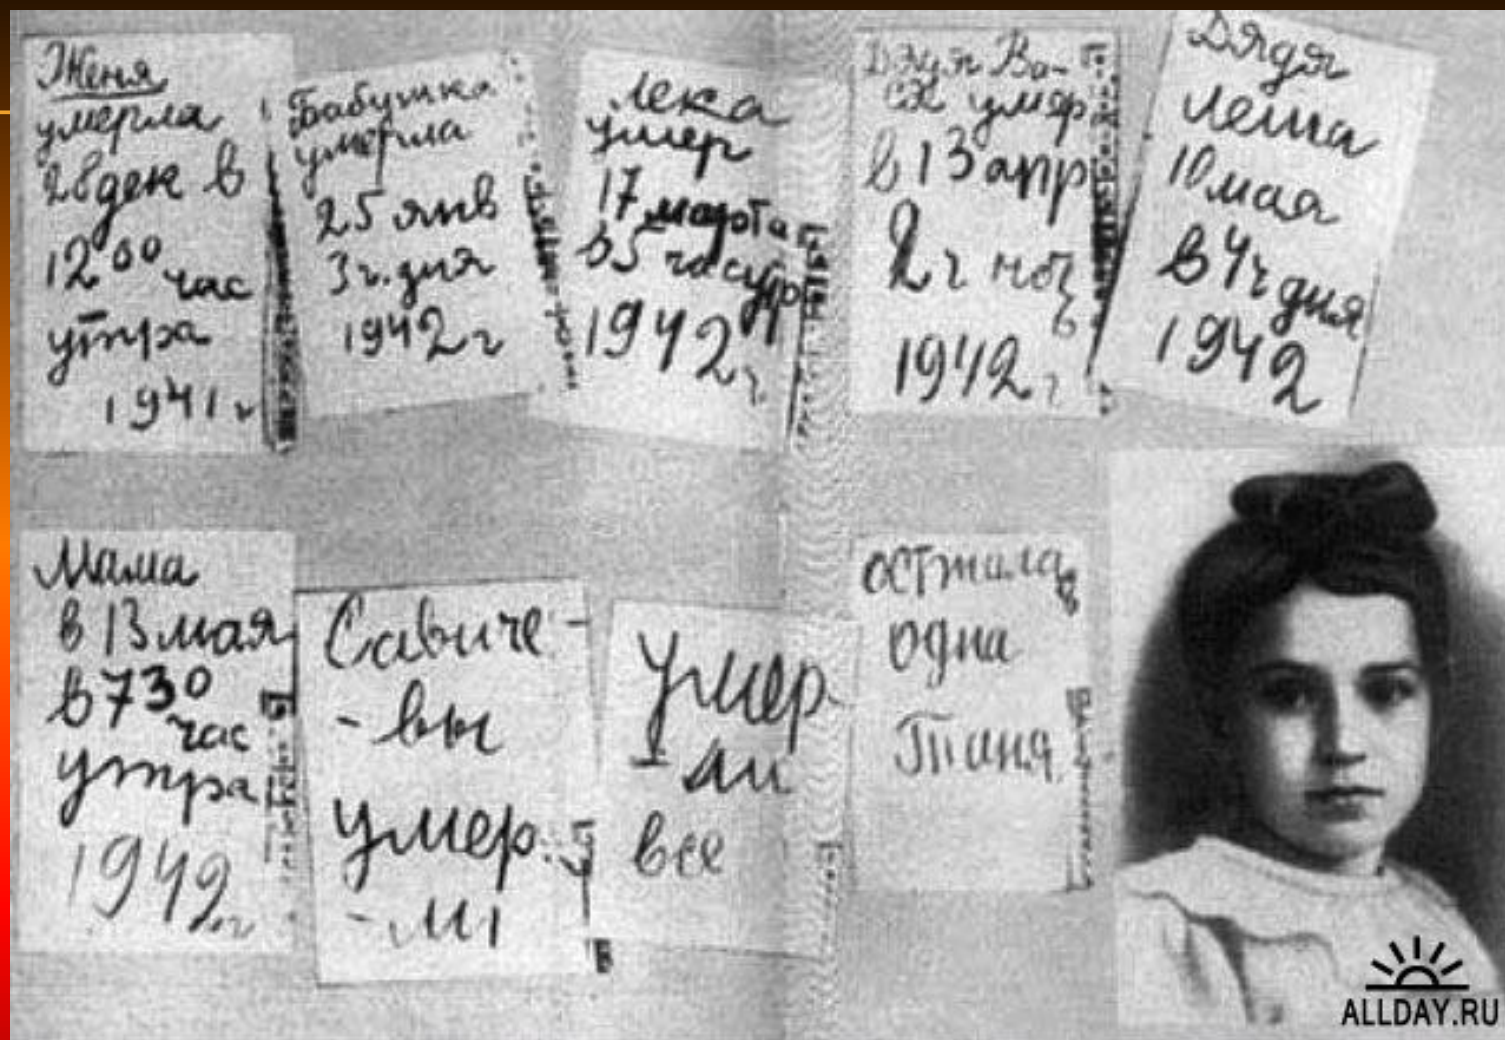 Женя
умерла
28 дек в
12 00 час
утра
1941 г
Бабушка
умерла
25 янв
3 ч. дня
1942 г
Лека
умер
17 марта
в 5 час утр
1942 г.
Дядя Ва-
ся умер
в 13 апр
2 ч ночь
1942 г
Дядя
Леша
10 мая
в 4 ч дня
1942
Мама
в 13 мая
в 7 30
час
утра
1942 г
Савиче-
- вы
умер.
- ли
Умер
- ли
все
осталась
одна
Таня
ALLDAY.RU